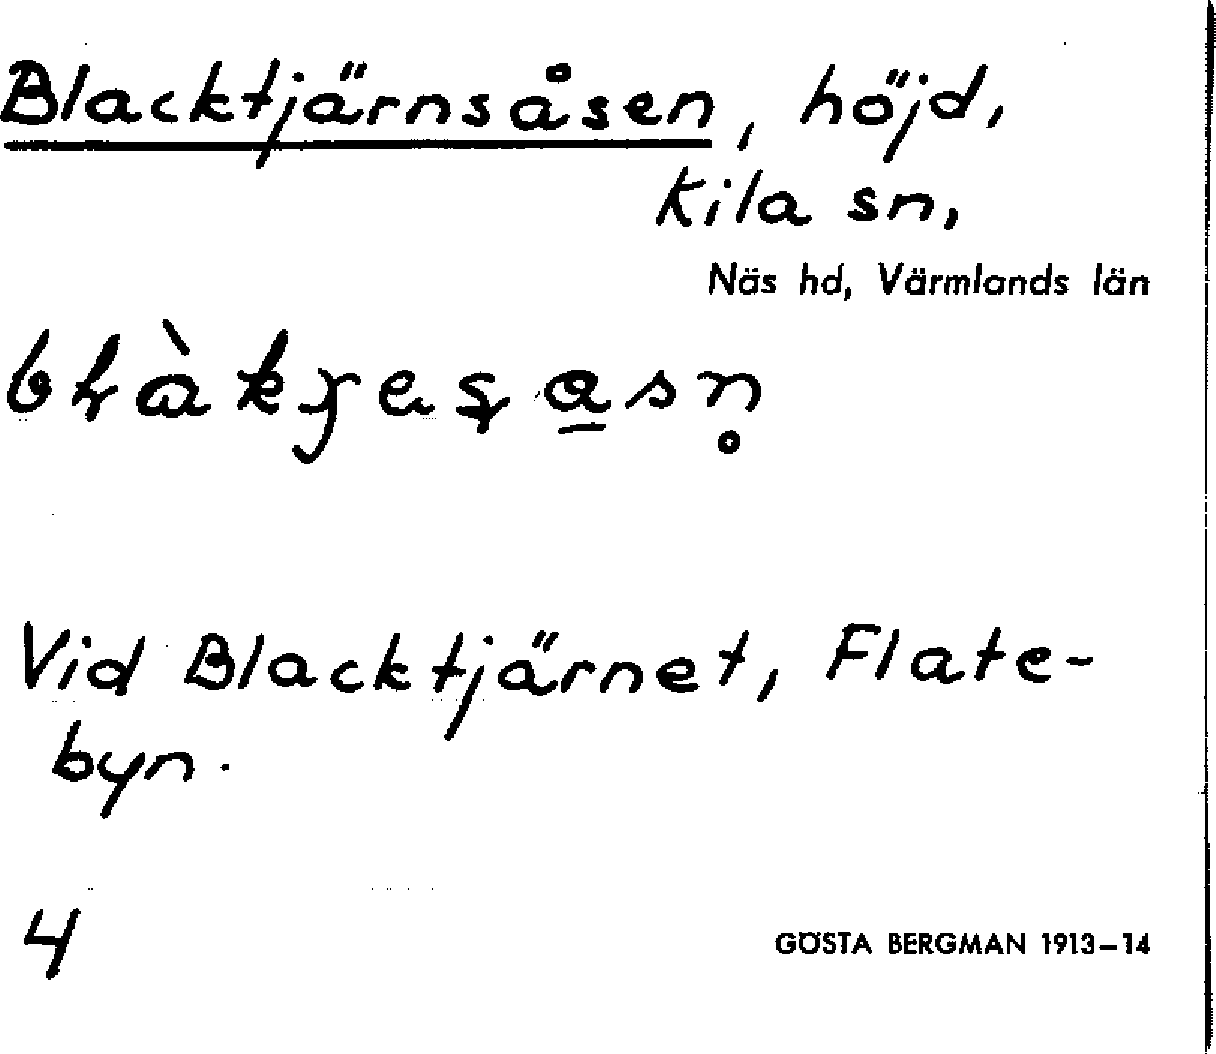 Blacktjärnsåsen, höjd,
Kila sn,
Näs hd, Värmlands län
Vid Blacktjärnet, Flate-
byn.
4
GÖSTA BERGMAN 1913–14